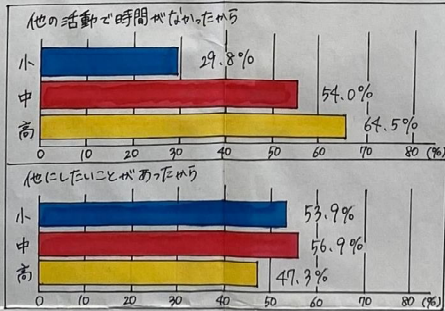 他の活動で時間がなかったから
小 29.8%
中 54.0%
高 64.5%
0 10 20 30 40 50 60 70 80 (%)
他にしたいことがあったから
小 53.9%
中 56.9%
高 47.3%
0 10 20 30 40 50 60 70 80 (%)